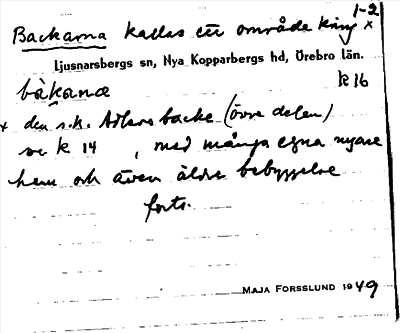 1-2
Backarna kallas ett område kring x
Ljusnarsbergs sn, Nya Kopparbergs hd, Örebro län.
bàkanæ k 16
x den s.k. backe (övre delen)
se k 14, med många egna nyare
hem och även äldre bebyggelse
forts.
MAJA FORSSLUND 1949